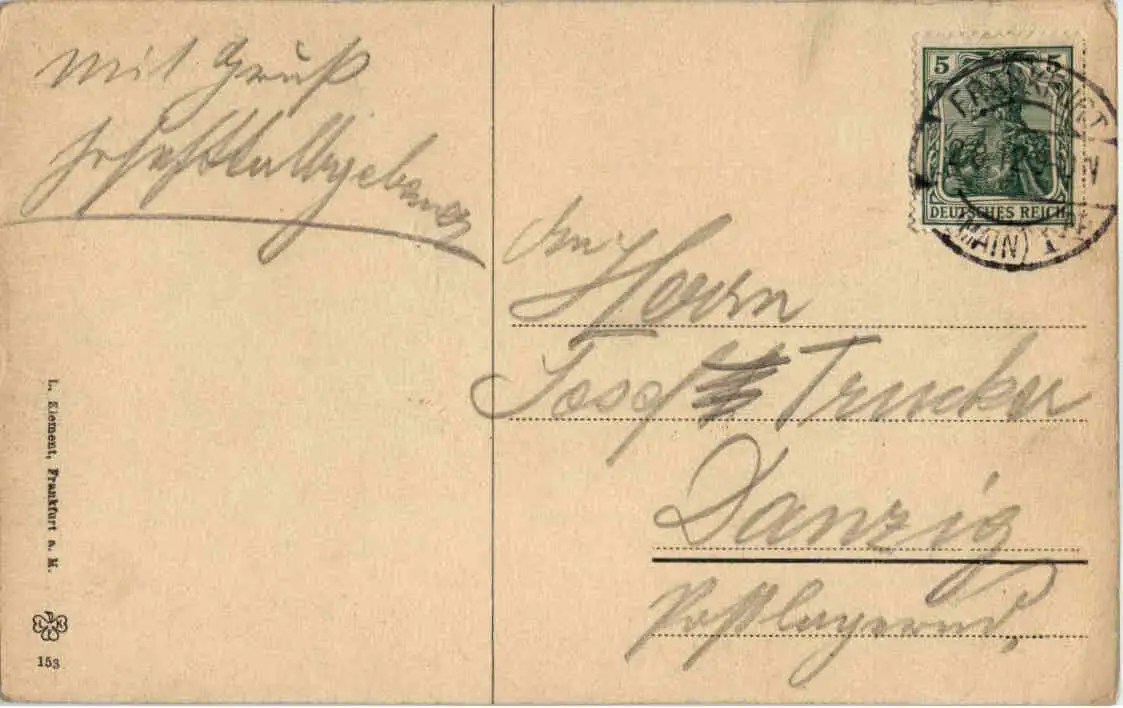 mit Gruß
An
Herrn
Josef Trucker
Danzig
Postlagernd.
5 5
DEUTSCHES REICH
FRANKFURT
(MAIN)
L. Klement, Frankfurt a. M.
L K
153